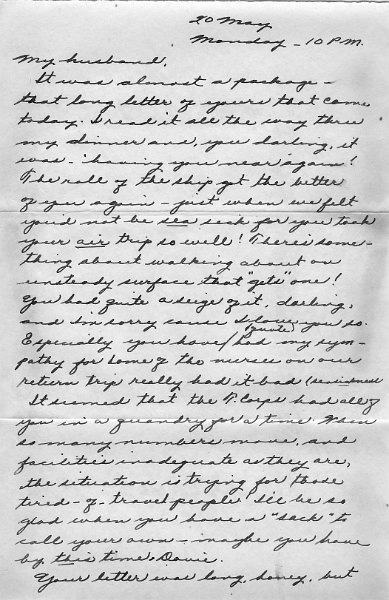 20 May
Monday - 10 P.M.
My husband,
It was almost a package -
that long letter of yours that came
today. I read it all the way thru
my dinner and, you darling, it
was - having you near again!
The roll of the ship got the better
of you again - just when we felt
you'd not be sea sick for you took
your air trip so well! There's some-
thing about walking about on
unsteady surface that "gets" one!
You had quite a seige of it, darling,
and I'm sorry cause I love you so.
Especially you have had my sym-
(quite)
pathy for some of the nurses on our
return trip really had it bad (seasickness)
It seemed that the A. Corps had all of
you in a quandry for a time. When
so many numbers move, and
facilities inadequate as they are,
the situation is trying for those
tired - of - travel people! I'll be so
glad when you have a "sack" to
call your own - maybe you have
by this time, Davie.
Your letter was long, honey, but